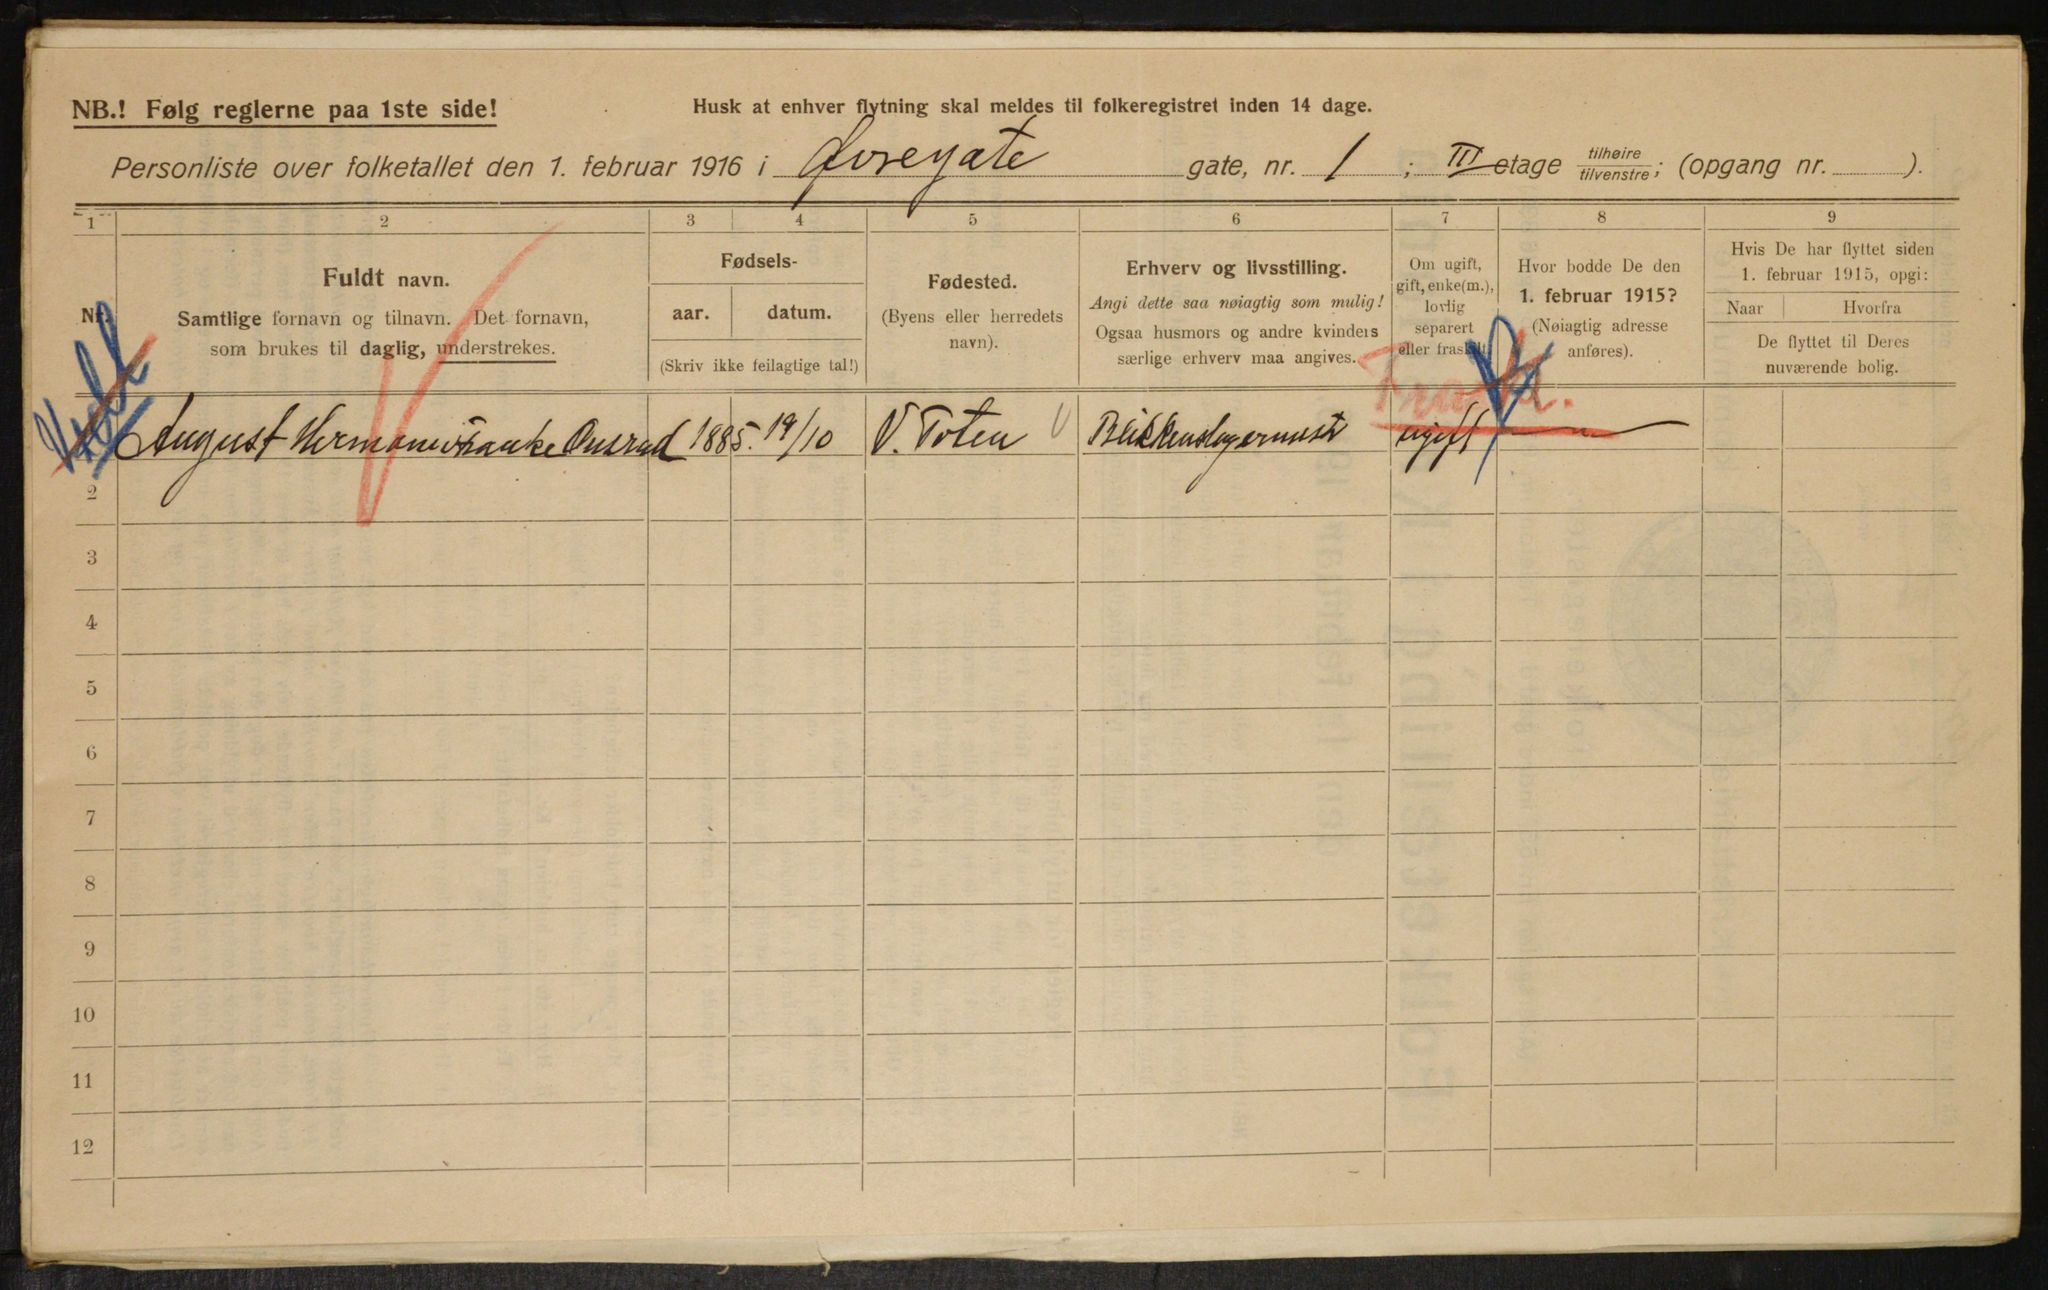 NB.! Følg reglerne paa 1ste side!
Husk at enhver flytning skal meldes til folkeregistret inden 14 dage.
Personliste over folketallet den 1. februar 1916 i gate, nr. 1 ; III etage tilhøire tilvenstre; (opgang nr. ).
1 2 3 4 5 6 7 8 9
Nr.
Fuldt navn.
Samtlige fornavn og tilnavn. Det fornavn,
som brukes til daglig, understrekes.
Fødsels-
aar. datum.
(Skriv ikke feilagtige tal!)
Fødested.
(Byens eller herredets
navn).
Erhverv og livsstilling.
Angi dette saa nøiagtig som mulig!
Ogsaa husmors og andre kvinders
særlige erhverv maa angives.
Om ugift,
gift, enke(m.),
lovlig
separert
eller fraskilt
Hvor bodde De den
1. februar 1915?
(Nøiagtig adresse
anføres).
Hvis De har flyttet siden
1. februar 1915, opgi:
Naar Hvorfra
De flyttet til Deres
nuværende bolig.
August 1885. 19/10 V. Toten ugift
2
3
4
5
6
7
8
9
10
11
12